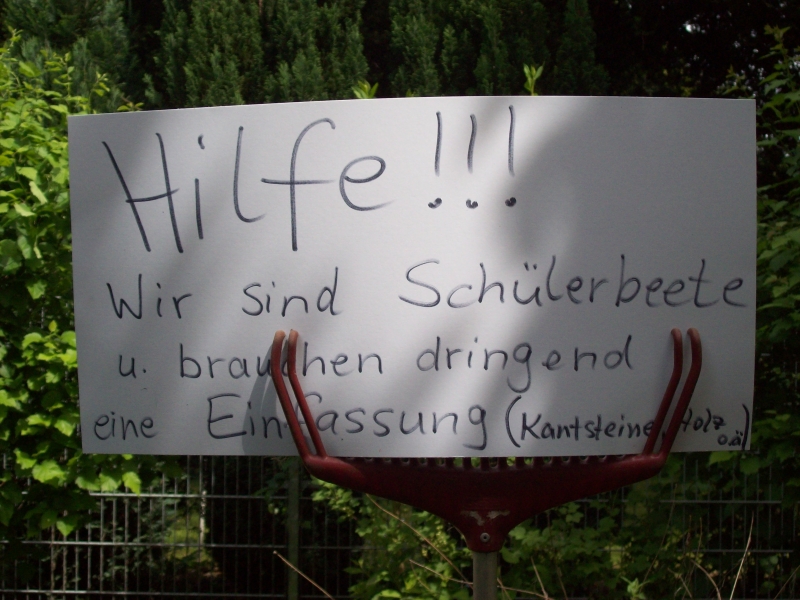 Hilfe!!!
Wir sind Schülerbeete
u. brauchen dringend
eine Einfassung (Kantsteine, Holz o.ä)